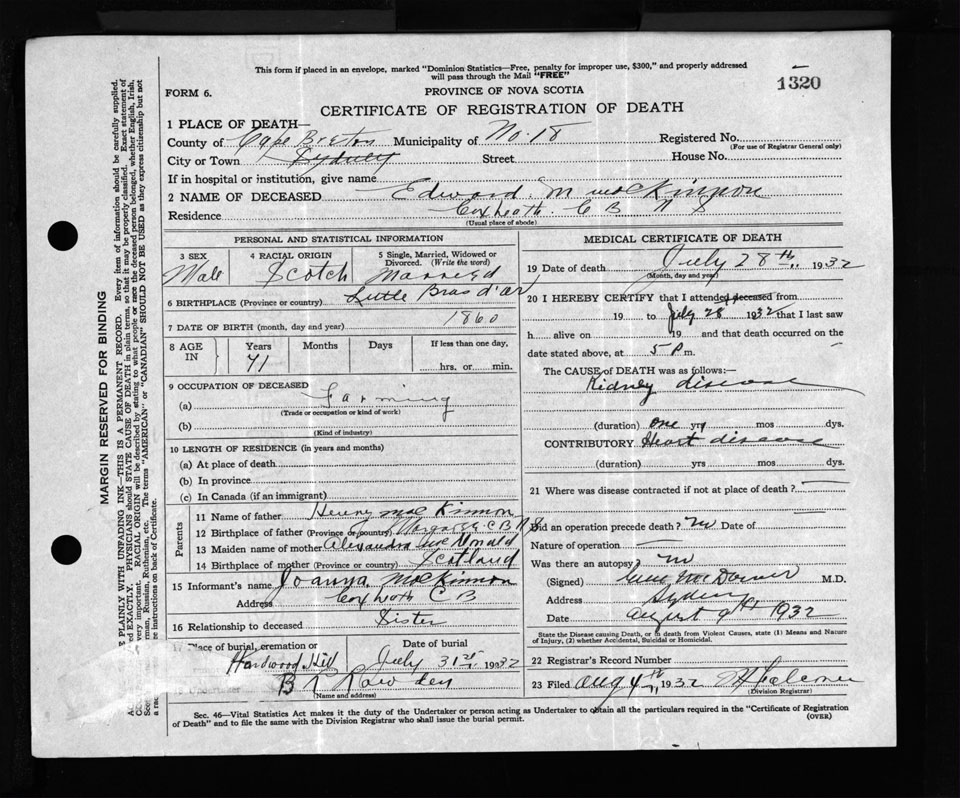 This form if placed in an envelope, marked "Dominion Statistics—Free, penalty for improper use, $300," and properly addressed
will pass through the Mail "FREE"
1320
FORM 6.
PROVINCE OF NOVA SCOTIA
CERTIFICATE OF REGISTRATION OF DEATH
1 PLACE OF DEATH—
County of Cape Breton Municipality of No. 18 Registered No.
(For use of Registrar General only)
City or Town Sydney Street House No.
If in hospital or institution, give name
2 NAME OF DECEASED Edward M MacKinnon
Residence Coxheath C B N S
(Usual place of abode)
PERSONAL AND STATISTICAL INFORMATION
3 SEX 4 RACIAL ORIGIN 5 Single, Married, Widowed or
Divorced. (Write the word)
Male Scotch Married
6 BIRTHPLACE (Province or country) Little Bras d'or
7 DATE OF BIRTH (month, day and year) 1860
8 AGE IN Years Months Days If less than one day,
71 hrs. or min.
9 OCCUPATION OF DECEASED
(a) Farming
(Trade or occupation or kind of work)
(b)
(Kind of industry)
10 LENGTH OF RESIDENCE (in years and months)
(a) At place of death
(b) In province
(c) In Canada (if an immigrant)
Parents
11 Name of father Henry MacKinnon
12 Birthplace of father (Province or country) Margaree C B N S
13 Maiden name of mother Alexandra MacDonald
14 Birthplace of mother (Province or country) Scotland
15 Informant's name Joanna MacKinnon
Address Coxheath C B
16 Relationship to deceased Sister
17 Place of burial, cremation or Date of burial
Hardwood Hill July 31st 1932
B
(Name and address)
MEDICAL CERTIFICATE OF DEATH
19 Date of death July 28th 1932
(Month, day and year)
20 I HEREBY CERTIFY that I attended deceased from
19 to July 28 1932 that I last saw
h alive on 19 and that death occurred on the
date stated above, at 5 P m.
The CAUSE OF DEATH was as follows:
Kidney disease
(duration) one yrs mos dys.
CONTRIBUTORY Heart disease
(duration) yrs mos dys.
21 Where was disease contracted if not at place of death?
Did an operation precede death? no Date of
Nature of operation
Was there an autopsy? no
(Signed) M.D.
Address Sydney
Date August 9th 1932
State the Disease causing Death, or in death from Violent Causes, state (1) Means and Nature
of Injury, (2) whether Accidental, Suicidal or Homicidal.
22 Registrar's Record Number
23 Filed Aug 1932
(Division Registrar)
Sec. 46—Vital Statistics Act makes it the duty of the Undertaker or person acting as Undertaker to obtain all the particulars required in the "Certificate of Registration
of Death" and to file the same with the Division Registrar who shall issue the burial permit.
(OVER)
MARGIN RESERVED FOR BINDING
PLAINLY WITH UNFADING INK—THIS IS A PERMANENT RECORD. Every item of information should be carefully supplied.
EXACTLY. PHYSICIANS should STATE CAUSE OF DEATH in plain terms, so that it may be properly classified. Exact statement of
very important. RACIAL ORIGIN will be described by stating to what people or race the deceased person belonged, whether English, Irish,
Russian, Ruthenian, etc. The terms "AMERICAN" or "CANADIAN" SHOULD NOT BE USED as they express citizenship but not
instructions on back of Certificate.